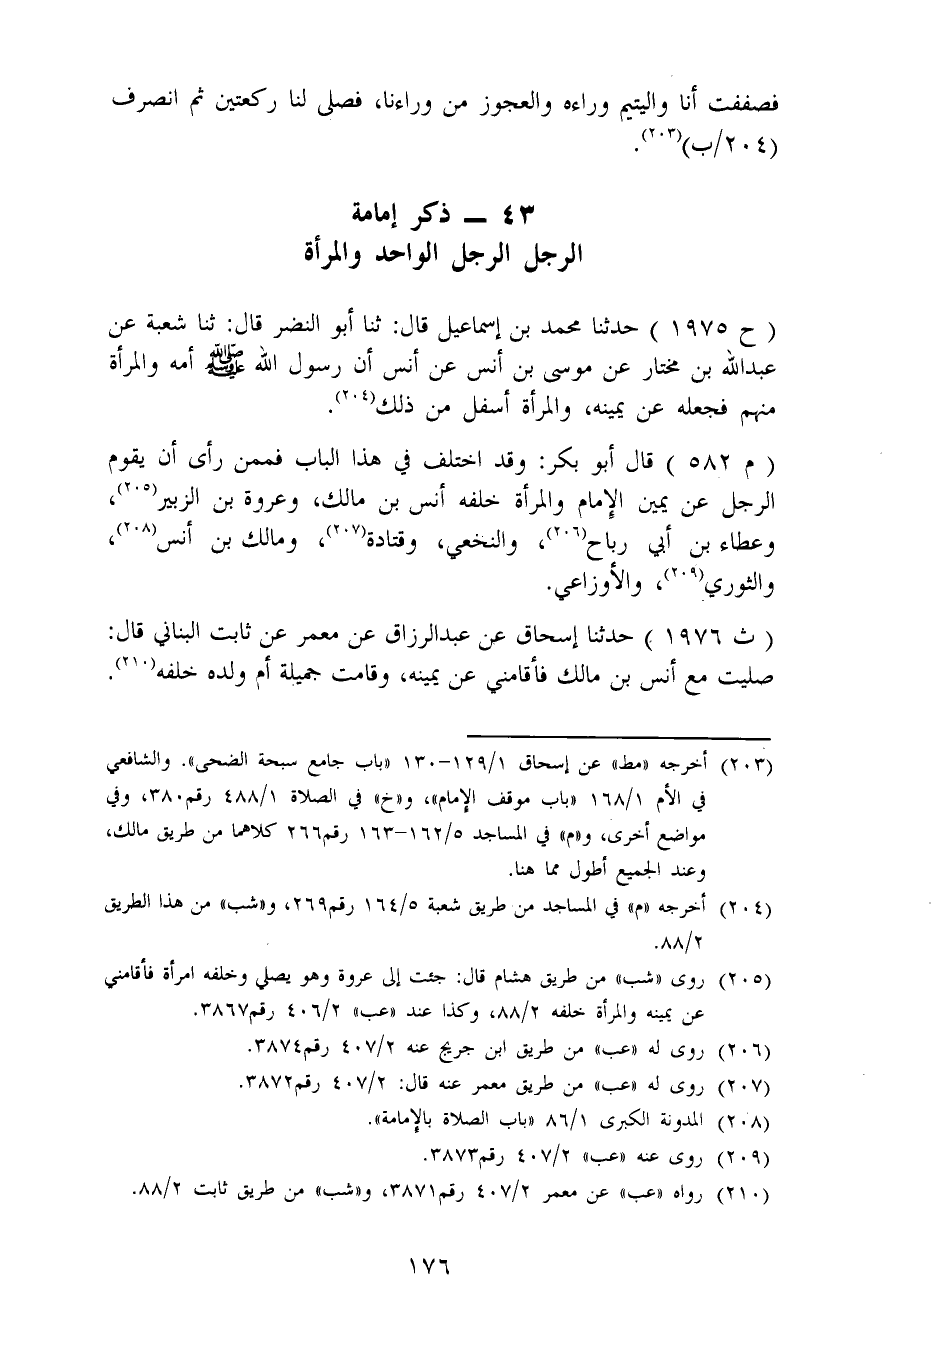 فصففت أنا واليتيم وراءه والعجوز من وراءنا، فصلى لنا ركعتين ثم انصرف
(٢٠٤/ب)(٢٠٣).
٤٣ ــ ذكر إمامة
الرجل الرجل الواحد والمرأة
( ح ١٩٧٥ ) حدثنا محمد بن إسماعيل قال: ثنا أبو النضر قال: ثنا شعبة عن
عبدالله بن مختار عن موسى بن أنس عن أنس أن رسول الله ﷺ أمه والمرأة
منهم فجعله عن يمينه، والمرأة أسفل من ذلك(٢٠٤).
( م ٥٨٢ ) قال أبو بكر: وقد اختلف في هذا الباب فممن رأى أن يقوم
الرجل عن يمين الإمام والمرأة خلفه أنس بن مالك، وعروة بن الزبير(٢٠٥)،
وعطاء بن أبي رباح(٢٠٦)، والنخعي، وقتادة(٢٠٧)، ومالك بن أنس(٢٠٨)،
والثوري(٢٠٩)، والأوزاعي.
( ث ١٩٧٦ ) حدثنا إسحاق عن عبدالرزاق عن معمر عن ثابت البناني قال:
صليت مع أنس بن مالك فأقامني عن يمينه، وقامت جميلة أم ولده خلفه(٢١٠).
(٢٠٣) أخرجه «مط» عن إسحاق ١/١٢٩–١٣٠ «باب جامع سبحة الضحى». والشافعي
في الأم ١/١٦٨ «باب موقف الإمام»، و«خ» في الصلاة ١/٤٨٨ رقم٣٨٠، وفي
مواضع أخرى، و«م» في المساجد ٥/١٦٢–١٦٣ رقم٢٦٦ كلاهما من طريق مالك،
وعند الجميع أطول مما هنا.
(٢٠٤) أخرجه «م» في المساجد من طريق شعبة ٥/١٦٤ رقم٢٦٩، و«شب» من هذا الطريق
٢/٨٨.
(٢٠٥) روى «شب» من طريق هشام قال: جئت إلى عروة وهو يصلي وخلفه امرأة فأقامني
عن يمينه والمرأة خلفه ٢/٨٨، وكذا عند «عب» ٢/٤٠٦ رقم٣٨٦٧.
(٢٠٦) روى له «عب» من طريق ابن جريج عنه ٢/٤٠٧ رقم٣٨٧٤.
(٢٠٧) روى له «عب» من طريق معمر عنه قال: ٢/٤٠٧ رقم٣٨٧٢.
(٢٠٨) المدونة الكبرى ١/٨٦ «باب الصلاة بالإمامة».
(٢٠٩) روى عنه «عب» ٢/٤٠٧ رقم٣٨٧٣.
(٢١٠) رواه «عب» عن معمر ٢/٤٠٧ رقم٣٨٧١، و«شب» من طريق ثابت ٢/٨٨.
١٧٦